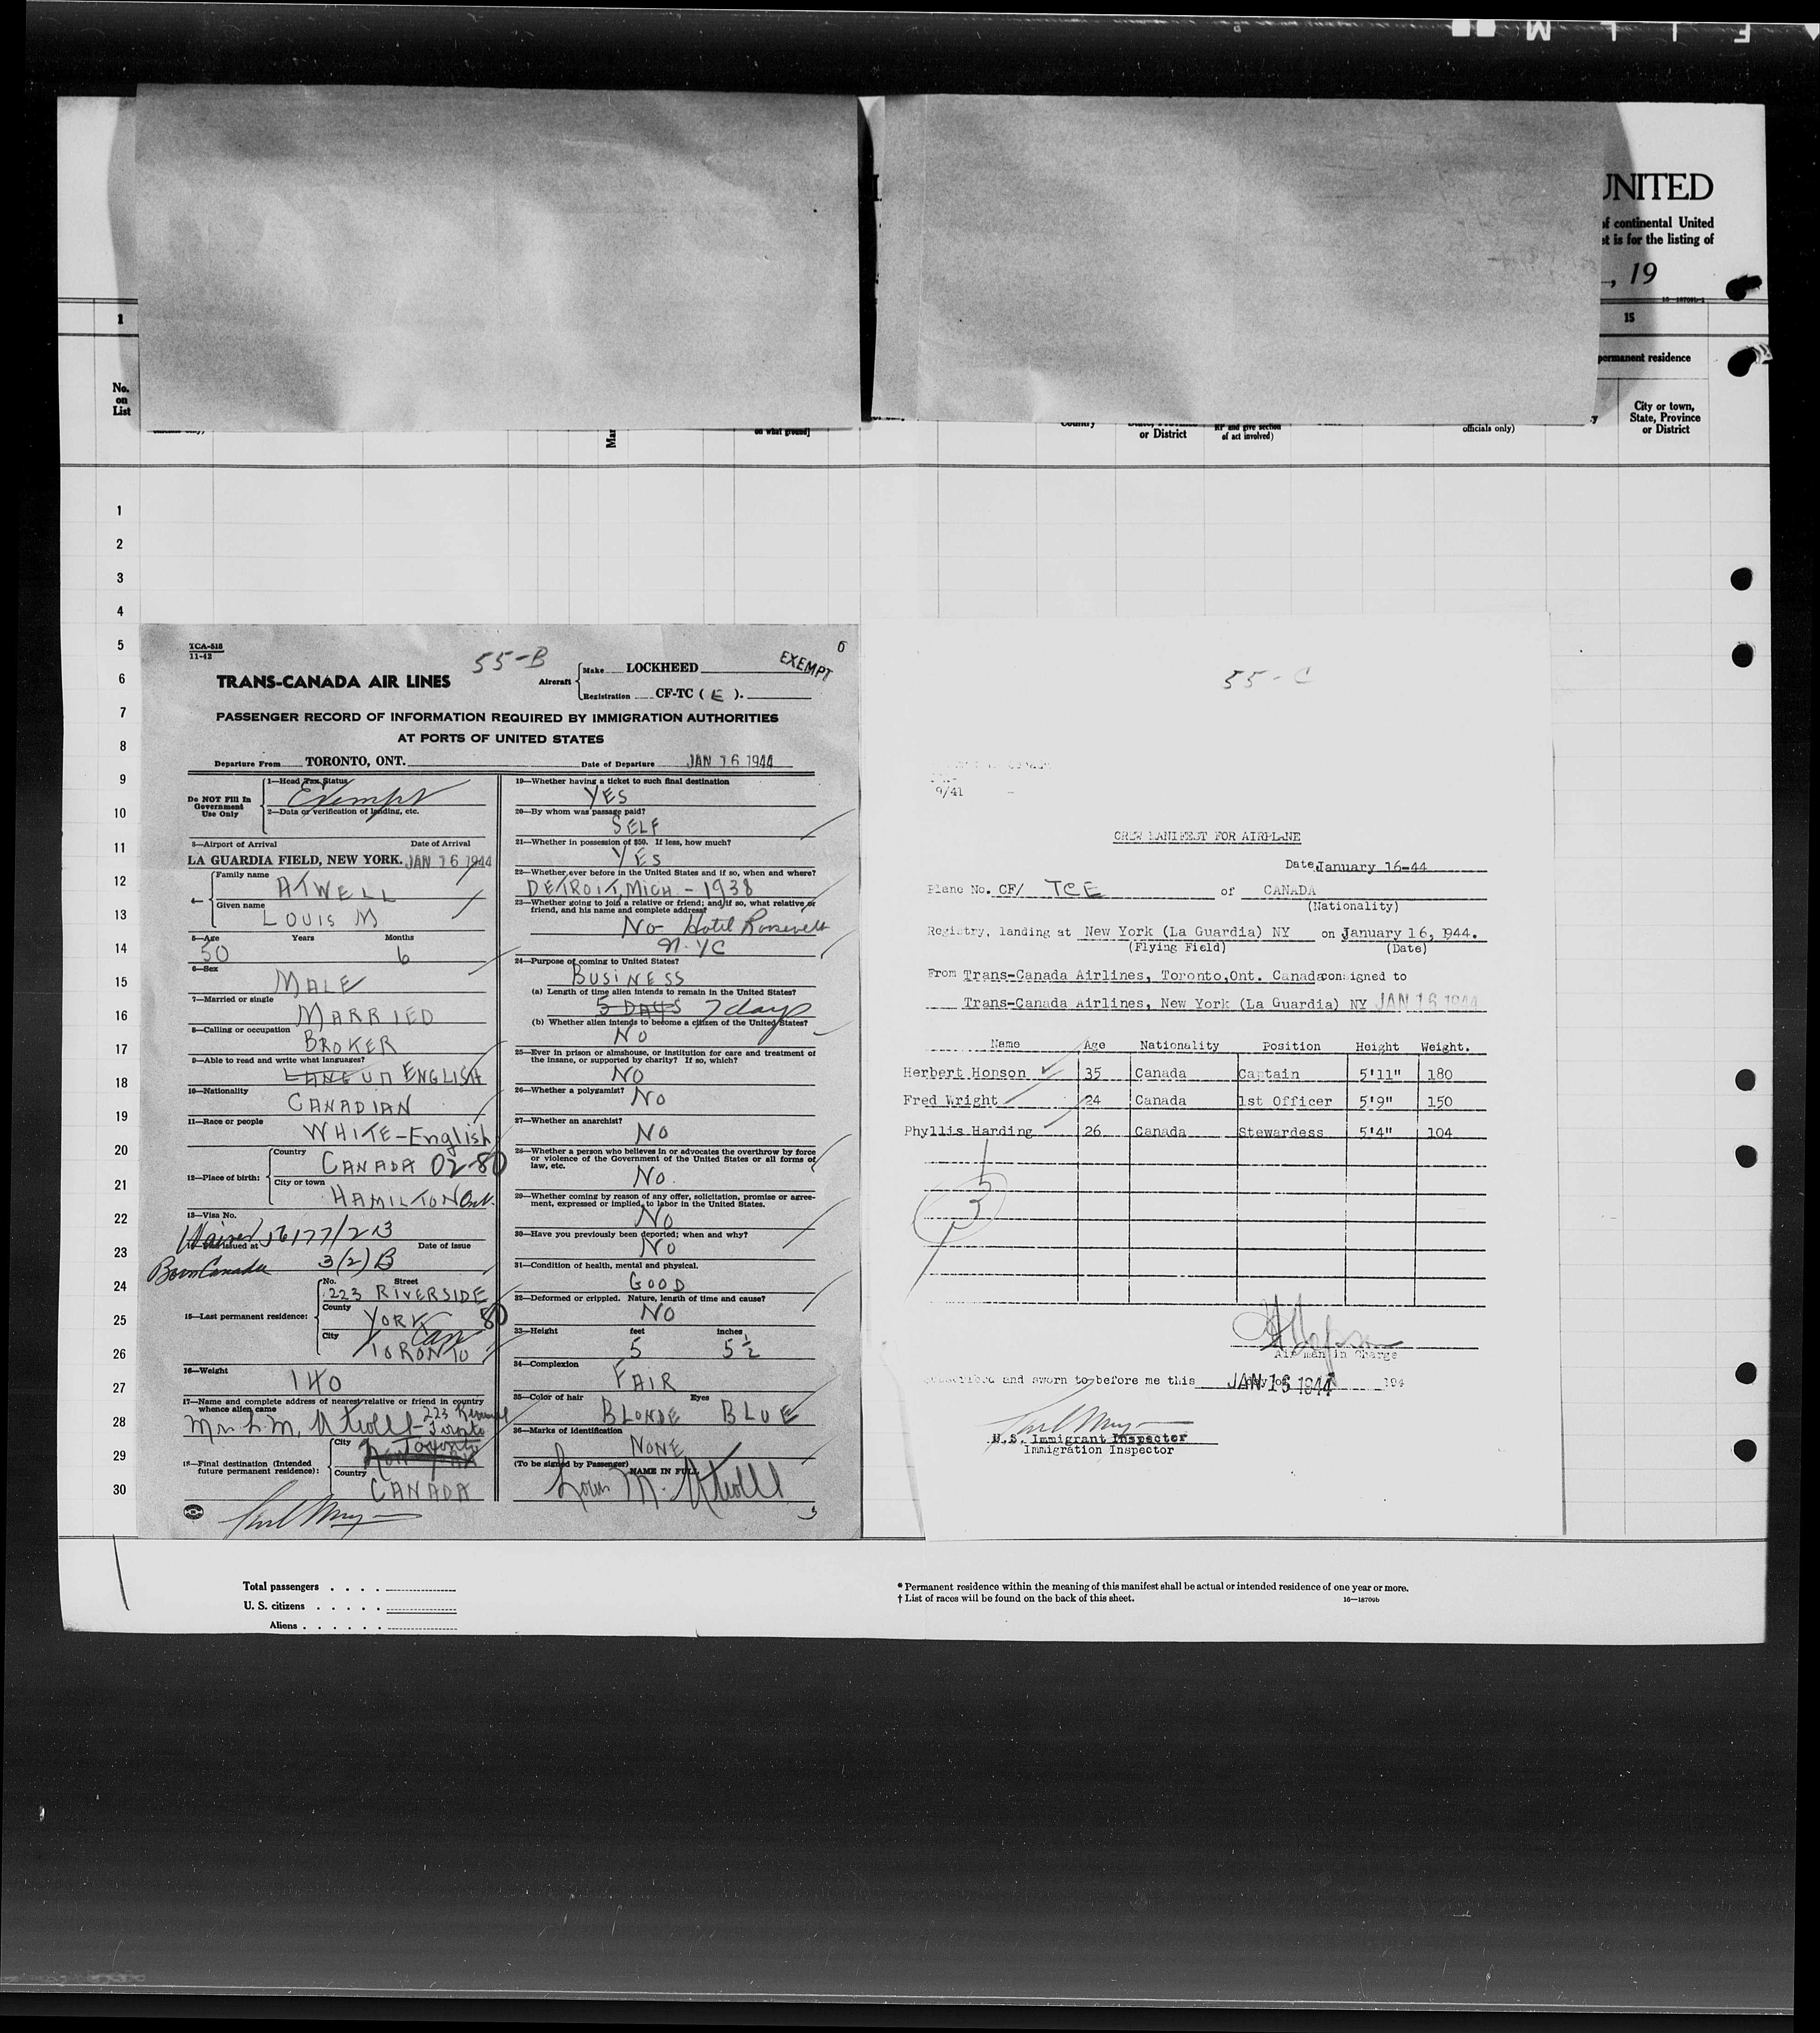 F I L M
UNITED
of continental United
is for the listing of
, 19
16-18709b-1
1
15
permanent residence
No.
on
List
City or town,
State, Province
or District
on what ground]
Country
or District
RP and give section
of act involved)
officials only)
1
2
3
4
5
6
7
8
9
10
11
12
13
14
15
16
17
18
19
20
21
22
23
24
25
26
27
28
29
30
TCA-518
11-42
55-B
6
EXEMPT
TRANS-CANADA AIR LINES
Aircraft
Make LOCKHEED
Registration CF-TC ( E ).
PASSENGER RECORD OF INFORMATION REQUIRED BY IMMIGRATION AUTHORITIES
AT PORTS OF UNITED STATES
Departure From TORONTO, ONT. Date of Departure JAN 16 1944
Do NOT Fill In
Government
Use Only
1—Head Tax Status
Exempt
2—Data or verification of landing, etc.
3—Airport of Arrival Date of Arrival
LA GUARDIA FIELD, NEW YORK. JAN 16 1944
4—
Family name
ATWELL
Given name
LOUIS M
5—Age Years Months
50 6
6—Sex
MALE
7—Married or single
MARRIED
8—Calling or occupation
BROKER
9—Able to read and write what languages?
ENGLISH
10—Nationality
CANADIAN
11—Race or people
WHITE-English
12—Place of birth:
Country
CANADA 02-80
City or town
HAMILTON Ont.
13—Visa No.
Waiver 16177/213
issued at Date of issue
Born Canada 3(2)B
15—Last permanent residence:
No. Street
223 RIVERSIDE
County
YORK 80
City Can
TORONTO
16—Weight
140
17—Name and complete address of nearest relative or friend in country
whence alien came
Mrs L.M. Atwell - 223
Toronto
18—Final destination (Intended
future permanent residence):
City Toronto
NEW YORK
Country
CANADA
19—Whether having a ticket to such final destination
YES
20—By whom was passage paid?
SELF
21—Whether in possession of $50. If less, how much?
YES
22—Whether ever before in the United States and if so, when and where?
DETROIT, MICH - 1938
23—Whether going to join a relative or friend; and if so, what relative or
friend, and his name and complete address?
No Hotel Roosevelt
N.YC
24—Purpose of coming to United States?
BUSINESS
(a) Length of time alien intends to remain in the United States?
5 DAYS 7 days
(b) Whether alien intends to become a citizen of the United States?
NO
25—Ever in prison or almshouse, or institution for care and treatment of
the insane, or supported by charity? If so, which?
NO
26—Whether a polygamist?
NO
27—Whether an anarchist?
NO
28—Whether a person who believes in or advocates the overthrow by force
or violence of the Government of the United States or all forms of
law, etc.
NO.
29—Whether coming by reason of any offer, solicitation, promise or agree-
ment, expressed or implied, to labor in the United States.
NO
30—Have you previously been deported; when and why?
NO
31—Condition of health, mental and physical.
GOOD
32—Deformed or crippled. Nature, length of time and cause?
NO
33—Height feet inches
5 5½
34—Complexion
FAIR
35—Color of hair Eyes
BLONDE BLUE
36—Marks of identification
NONE
(To be signed by Passenger) NAME IN FULL
Louis M. Atwell
55-C
9/41
CREW MANIFEST FOR AIRPLANE
Date January 16-44
Plane No. CF/ TCE of CANADA
(Nationality)
Registry, landing at New York (La Guardia) NY on January 16, 1944.
(Flying Field) (Date)
From Trans-Canada Airlines, Toronto, Ont. Canada consigned to
Trans-Canada Airlines, New York (La Guardia) NY JAN 16 1944
Name Age Nationality Position Height Weight.
Herbert Honson 35 Canada Captain 5'11" 180
Fred Wright 24 Canada 1st Officer 5'9" 150
Phyllis Harding 26 Canada Stewardess 5'4" 104
3
Airman in Charge
Subscribed and sworn to before me this JAN 16 1944 day of 194
U.S. Immigrant Inspector
Immigration Inspector
Total passengers . . . .
U. S. citizens . . . . .
Aliens . . . . . .
* Permanent residence within the meaning of this manifest shall be actual or intended residence of one year or more.
† List of races will be found on the back of this sheet.
16—18709b